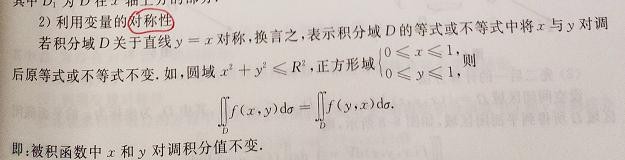 2) 利用变量的对称性
若积分域 D 关于直线 y = x 对称,换言之,表示积分域 D 的等式或不等式中将 x 与 y 对调
后原等式或不等式不变.如,圆域 x² + y² ⩽ R²,正方形域 {0 ⩽ x ⩽ 1, 0 ⩽ y ⩽ 1, 则
∬_D f(x,y)dσ = ∬_D f(y,x)dσ.
即:被积函数中 x 和 y 对调积分值不变.